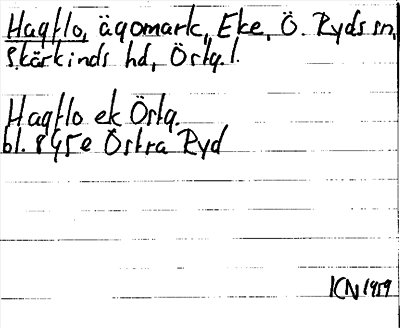 Hagflo, ägomark, Eke, Ö. Ryds sn,
Skärkinds hd, Östg. l.
Hagflo ek Östg.
bl. 8 G5e Östra Ryd
ICN 1959